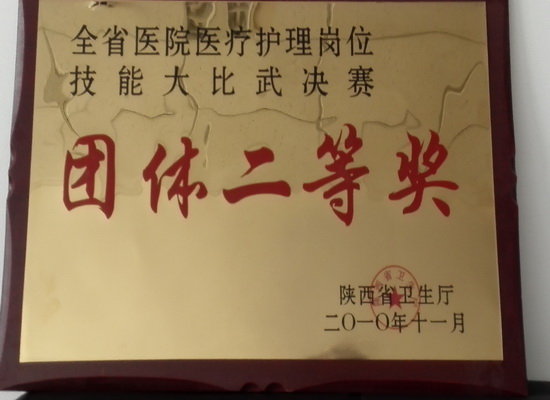 全省医院医疗护理岗位
技能大比武决赛
团体二等奖
陕西省卫生厅
二〇一〇年十一月